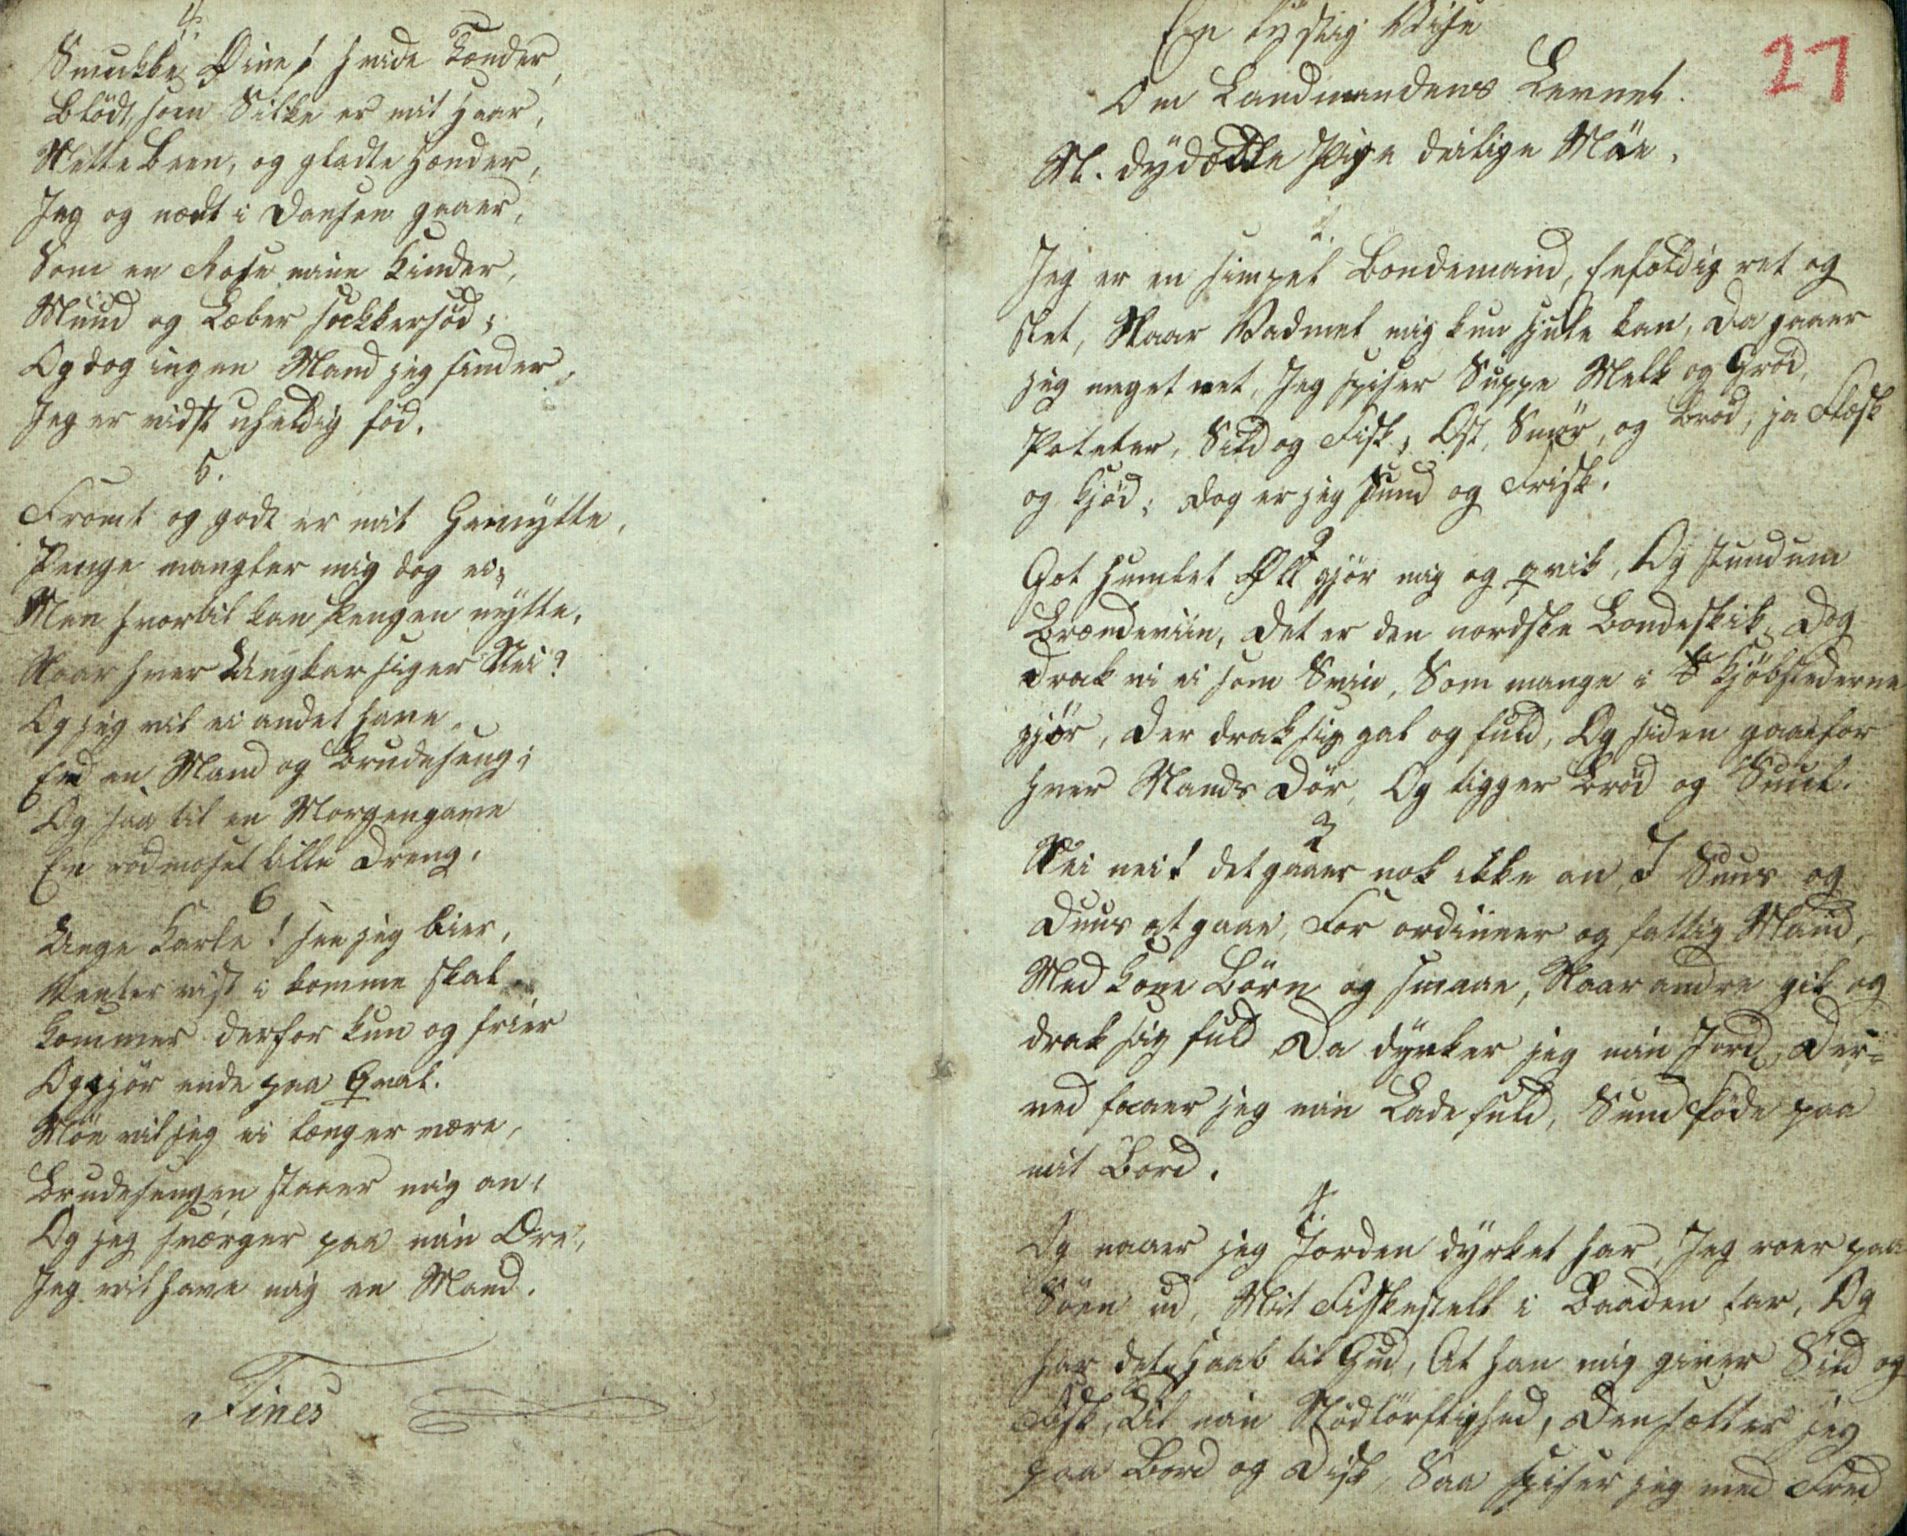 4.
Smukke Øine! hvide Tænder,
Blödt som Silke er mit Haar,
Nette Been, og gladte Hænder,
Jeg og nædt i Dansen gaaer,
Som en Rose mine Kinder,
Mund og Læber sukkersöd;
Og dog ingen Mand jeg finder,
Jeg er vidst uheldig föd.
5.
Fromt og godt er mit Gemytte,
Penge mangler mig dog ei;
Men hvortil kan Pengen nÿtte,
Naar hver Ungkar siger Nei?
Og jeg vil ei andet have,
End en Mand og Brudeseng;
Og saa til en Morgengave
En rödmoset lille Dreng.
6
Unge Karle! see jeg bier,
Venter vist i komme skal
Kommer derfor kun og frier
Og gjör ende paa Qval.
Möe vil jeg ei længer være,
Brudesengen staaer mig an,
Og jeg sværger paa min Ære,
Jeg vil have mig en Mand.
Fines
En lÿstig Viise
Om Landmandens Levnet.
M. dÿdædle Pige deilige Möe.
27
1.
Jeg er en simpel Bondemand, Enfoldig ret og
slet, Naar Vadmel mig kun hjule kan, Da gaaer
jeg meget net, Jeg spiser Suppe Melk og Gröd,
Poteter, Sild og Fisk, Ost, Smör, og Bröd, ja Flesk
og kjöd; dog er jeg Sund og Frisk.
2
Got humlet Øll gjör mig og qvik, Og stundum
Brændeviin, Det er den nordske Bondeskik, Dog
drak vi ei som Sviin, Som mange i Kjöbstederne
gjör, Der drak sig gal og fuld, Og siden gaae for
hver Mands Dör, Og tigger Bröd og Suul.
3
Nei nei! det gaaer nok ikke an, I Suus og
Duus at gaae, For ordineer og fattig Mand,
Med Kone Börn og smaae, Naar andre gik og
drak sig fuld Da dÿrker jeg min Jord, Der-
ved faaer jeg min Lade fuld, Sund Föde paa
mit Bord.
4.
Og naaer jeg Jorden dÿrket har, Jeg roer paa
Söen ud, Mit Fiskestell i Baaden tar, Og
har det Haab til Gud, At han mig giver Sild og
Fisk, Til min Nödtörftighed, Den sætter jeg
paa Bord og Disk, Saa spiser jeg med Fred